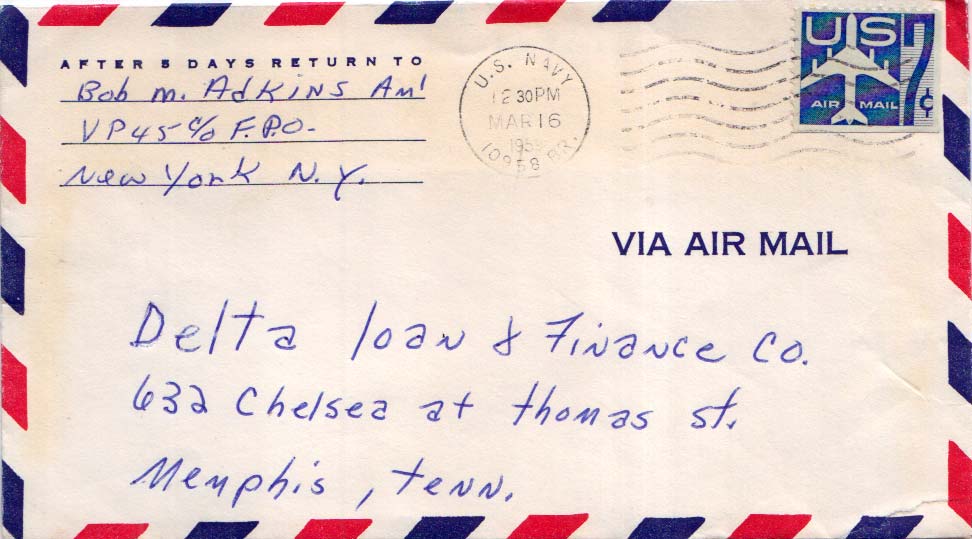 AFTER 5 DAYS RETURN TO
Bob M. Adkins AM1
VP45 c/o F.P.O.
New York N.Y.
U.S. NAVY
12 30PM
MAR 16
10958 BR.
US
AIR MAIL
7¢
VIA AIR MAIL
Delta loan & Finance Co.
632 Chelsea at thomas st.
Memphis, tenn.